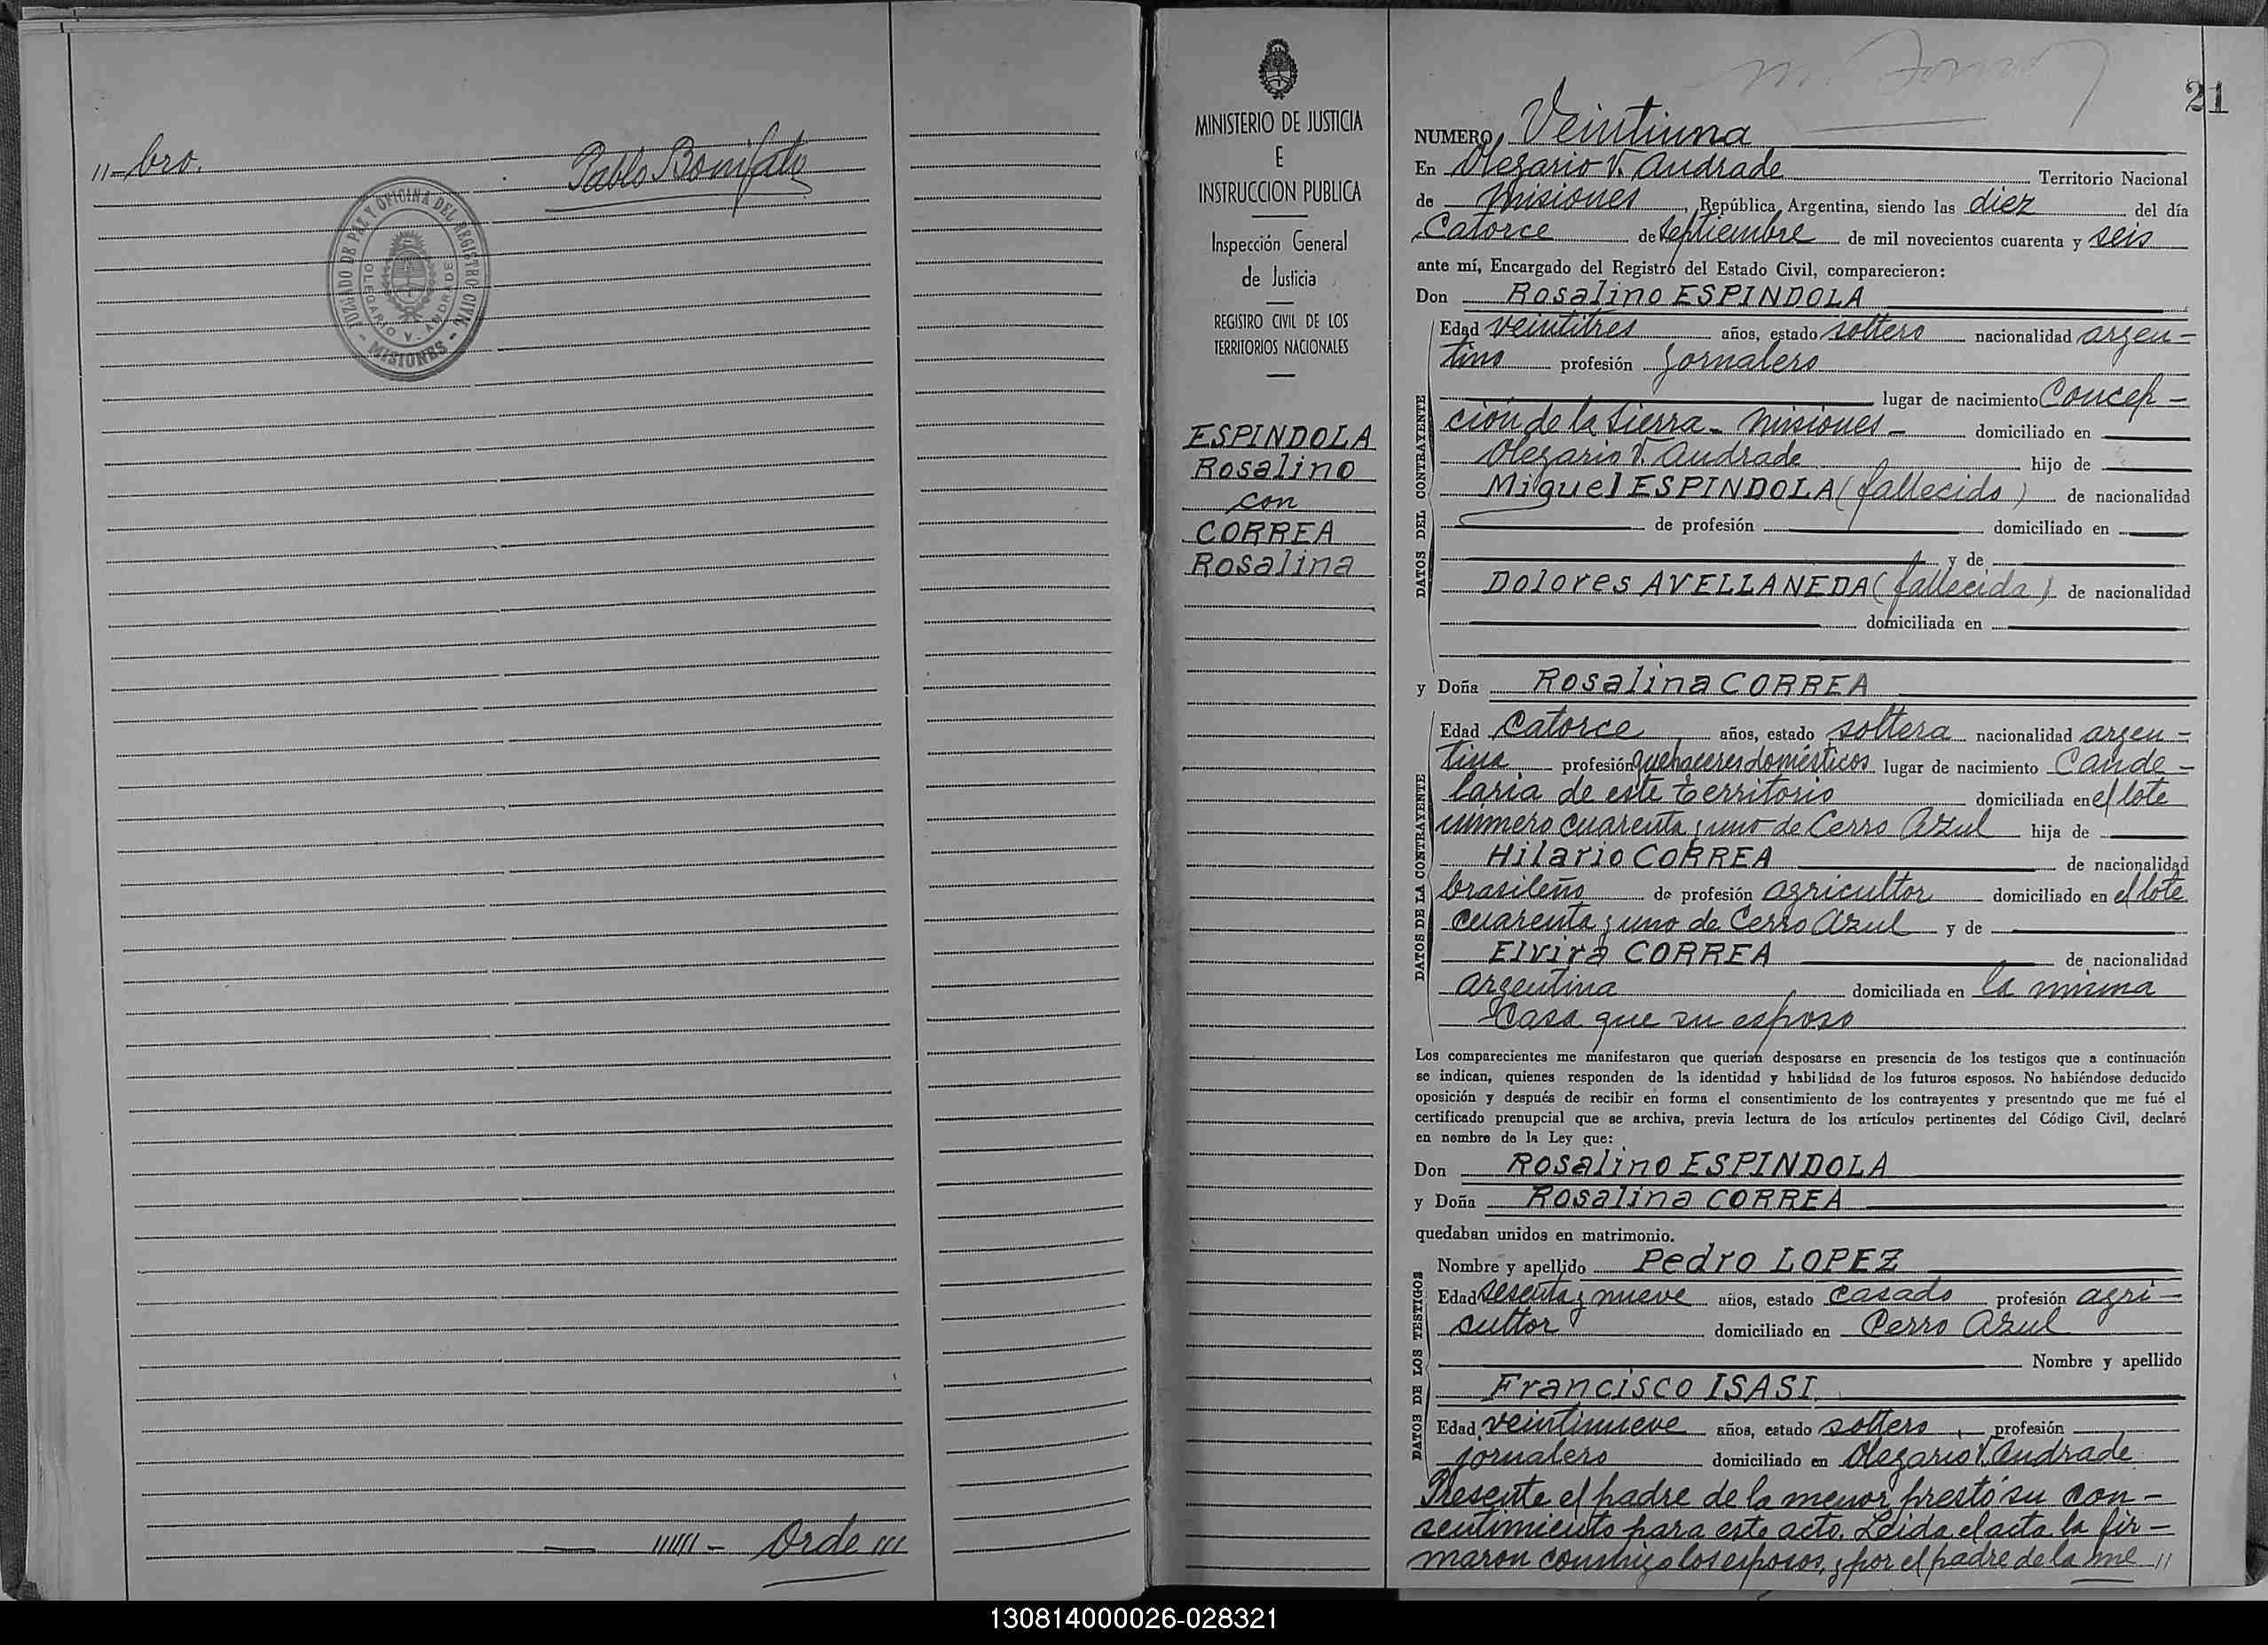 "- bro.
Pablo Bonifato
JUZGADO DE PAZ Y OFICINA DEL REGISTRO CIVIL
OLEGARIO V. ANDRADE
- MISIONES -
"""- Orde "'
MINISTERIO DE JUSTICIA
E
INSTRUCCION PUBLICA
Inspección General
de Justicia
REGISTRO CIVIL DE LOS
TERRITORIOS NACIONALES
ESPINDOLA
Rosalino
con
CORREA
Rosalina
21
NUMERO Veintiuna
En Olegario V. Andrade Territorio Nacional
de Misiones, República Argentina, siendo las diez del día
Catorce de Septiembre de mil novecientos cuarenta y seis
ante mí, Encargado del Registro del Estado Civil, comparecieron:
Don Rosalino ESPINDOLA
DATOS DEL CONTRAYENTE
Edad veintitres años, estado soltero nacionalidad argen-
tino profesión jornalero
lugar de nacimiento Concep-
ción de la Sierra - Misiones - domiciliado en
Olegario V. Andrade hijo de
Miguel ESPINDOLA (fallecido) de nacionalidad
de profesión domiciliado en
y de
Dolores AVELLANEDA (fallecida) de nacionalidad
domiciliada en
y Doña Rosalina CORREA
DATOS DE LA CONTRAYENTE
Edad Catorce años, estado soltera nacionalidad argen-
tina profesión quehaceres domésticos lugar de nacimiento Cande-
laria de este territorio domiciliada en el lote
número cuarenta y uno de Cerro Azul hija de
Hilario CORREA de nacionalidad
brasileño de profesión agricultor domiciliado en el lote
cuarenta y uno de Cerro Azul y de
Elvira CORREA de nacionalidad
argentina domiciliada en la misma
Casa que su esposo
Los comparecientes me manifestaron que querían desposarse en presencia de los testigos que a continuación
se indican, quienes responden de la identidad y habilidad de los futuros esposos. No habiéndose deducido
oposición y después de recibir en forma el consentimiento de los contrayentes y presentado que me fué el
certificado prenupcial que se archiva, previa lectura de los artículos pertinentes del Código Civil, declaré
en nombre de la Ley que:
Don Rosalino ESPINDOLA
y Doña Rosalina CORREA
quedaban unidos en matrimonio.
DATOS DE LOS TESTIGOS
Nombre y apellido Pedro LOPEZ
Edad sesenta y nueve años, estado casado profesión agri-
cultor domiciliado en Cerro Azul
Nombre y apellido
Francisco ISASI
Edad veintinueve años, estado soltero, profesión
jornalero domiciliado en Olegario V. Andrade
Presente el padre de la menor prestó su con-
sentimiento para este acto. Leida el acta la fir-
maron conmigo los esposos, y por el padre de la me "
130814000026-028321